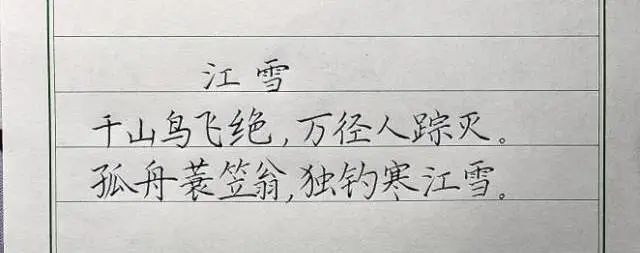 江雪
千山鸟飞绝,万径人踪灭。
孤舟蓑笠翁,独钓寒江雪。